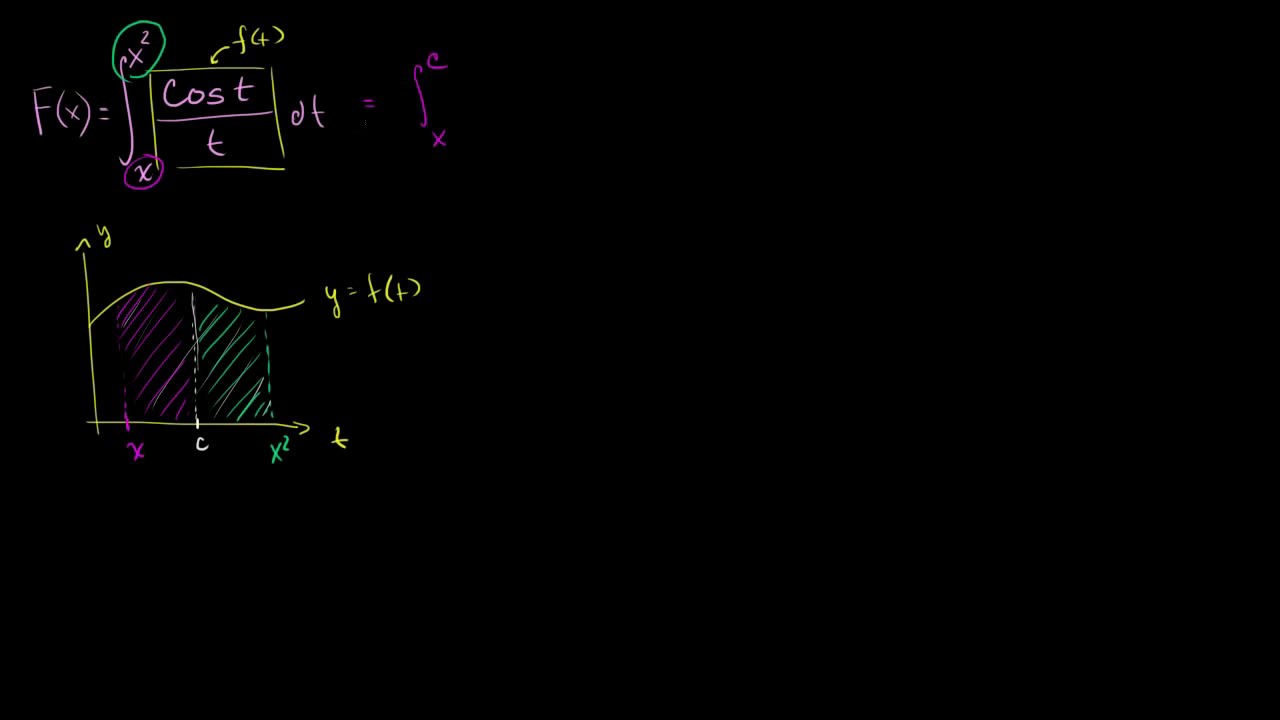 f(t)
F(x) = ∫ₓ^x² cos t / t dt = ∫ₓ^c
y
y = f(t)
x c x² t